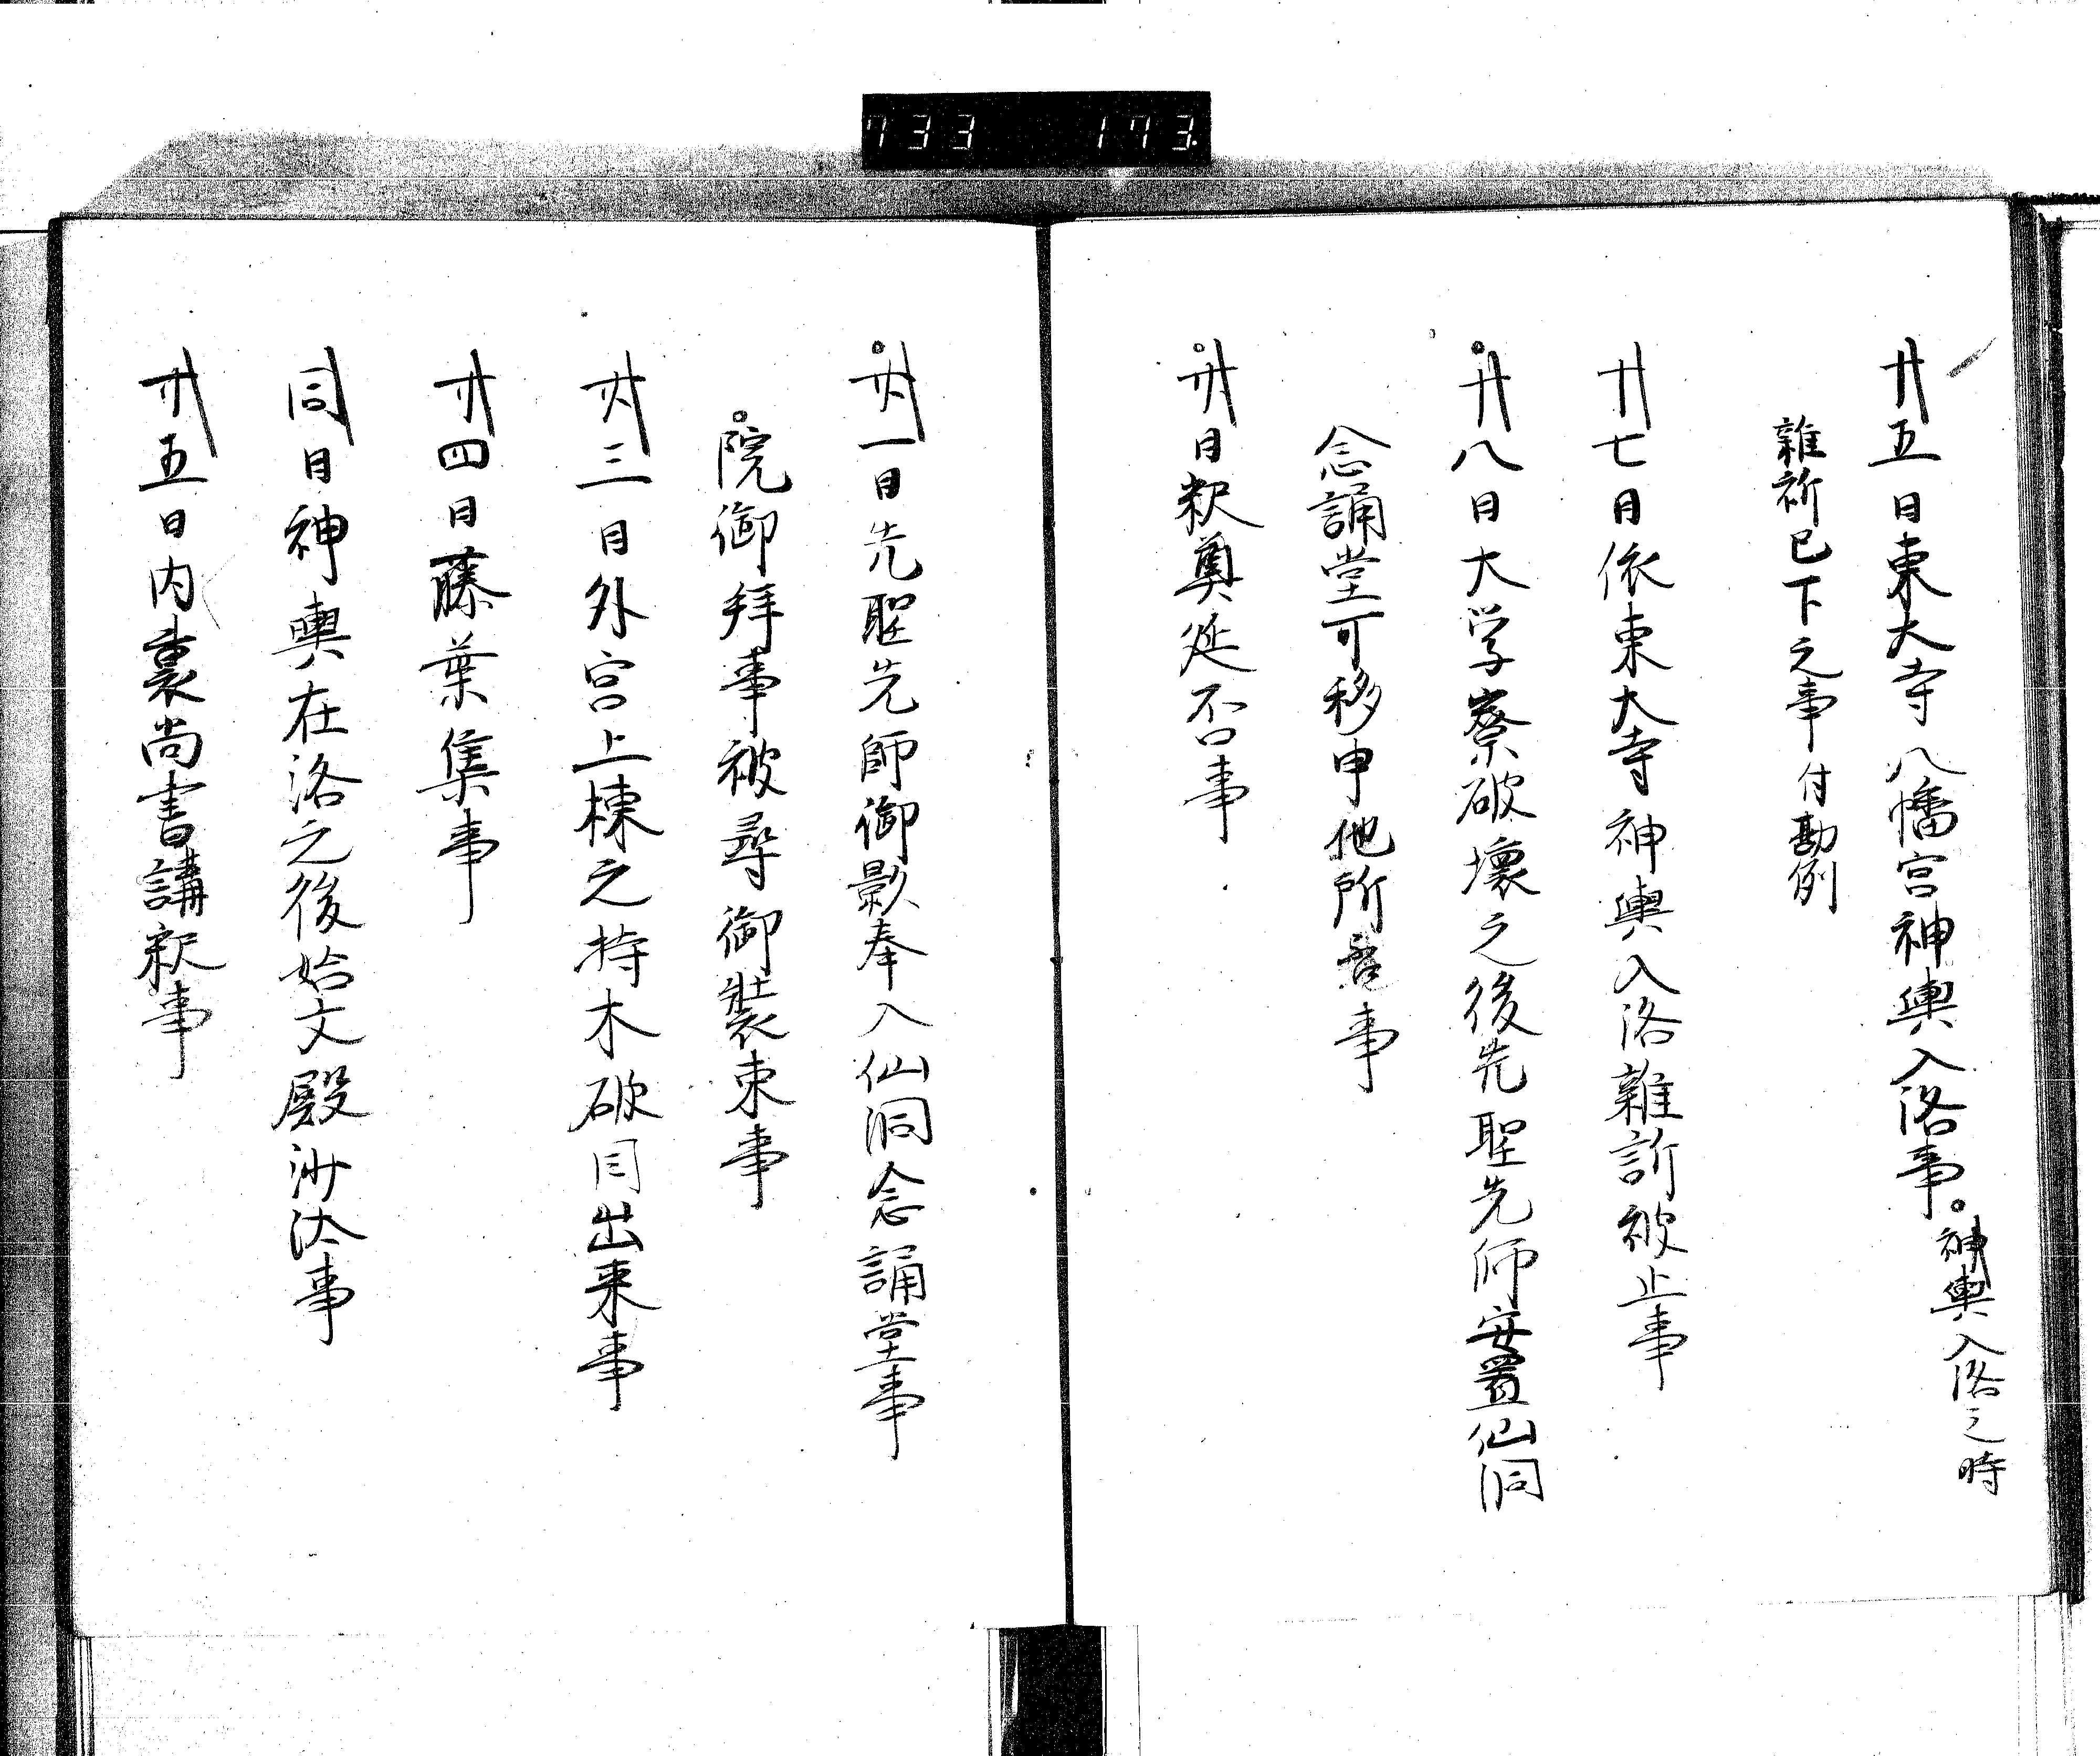 十五日東大寺八幡宮神輿入洛事。神輿入洛之時
雑訴已下之事付勘例
十七日依東大寺神輿入洛雑訴被止事
十八日大学寮破壊之後先聖先師安置仙洞
念誦堂可移申他所事
廿日釈奠延否事
廿一日先聖先師御影奉入仙洞念誦堂事
院御拝事被尋御装束事
廿三日外宮上棟之持木破目出来事
廿四日藤葉集事
同日神輿在洛之後始文殿沙汰事
廿五日内裏尚書講釈事
733 173